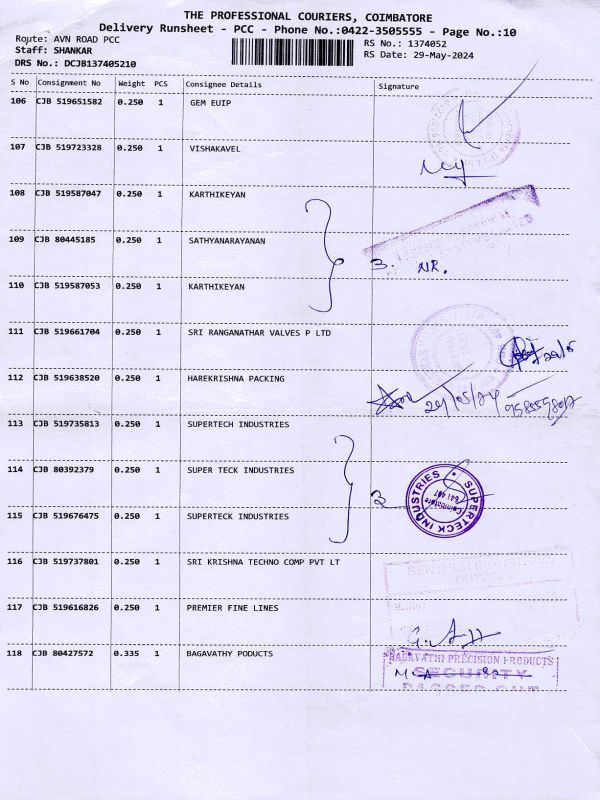 THE PROFESSIONAL COURIERS, COIMBATORE
Delivery Runsheet - PCC - Phone No.:0422-3505555 - Page No.:10
Route: AVN ROAD PCC
RS No.: 1374052
Staff: SHANKAR
RS Date: 29-May-2024
DRS No.: DCJB137405210
S No Consignment No Weight PCS Consignee Details Signature
106 CJB 519651582 0.250 1 GEM EUIP
107 CJB 519723328 0.250 1 VISHAKAVEL
108 CJB 519587047 0.250 1 KARTHIKEYAN
109 CJB 80445185 0.250 1 SATHYANARAYANAN
3.
110 CJB 519587053 0.250 1 KARTHIKEYAN
111 CJB 519661704 0.250 1 SRI RANGANATHAR VALVES P LTD
112 CJB 519638520 0.250 1 HAREKRISHNA PACKING
29/05/24
113 CJB 519735813 0.250 1 SUPERTECH INDUSTRIES
114 CJB 80392379 0.250 1 SUPER TECK INDUSTRIES
2
SUPERTECK INDUSTRIES
Coimbatore
641 407
115 CJB 519676475 0.250 1 SUPERTECK INDUSTRIES
116 CJB 519737801 0.250 1 SRI KRISHNA TECHNO COMP PVT LT
117 CJB 519616826 0.250 1 PREMIER FINE LINES
118 CJB 80427572 0.335 1 BAGAVATHY PODUCTS
BAGAVATHI PRECISION PRODUCTS
SECURITY
PASSED OUT